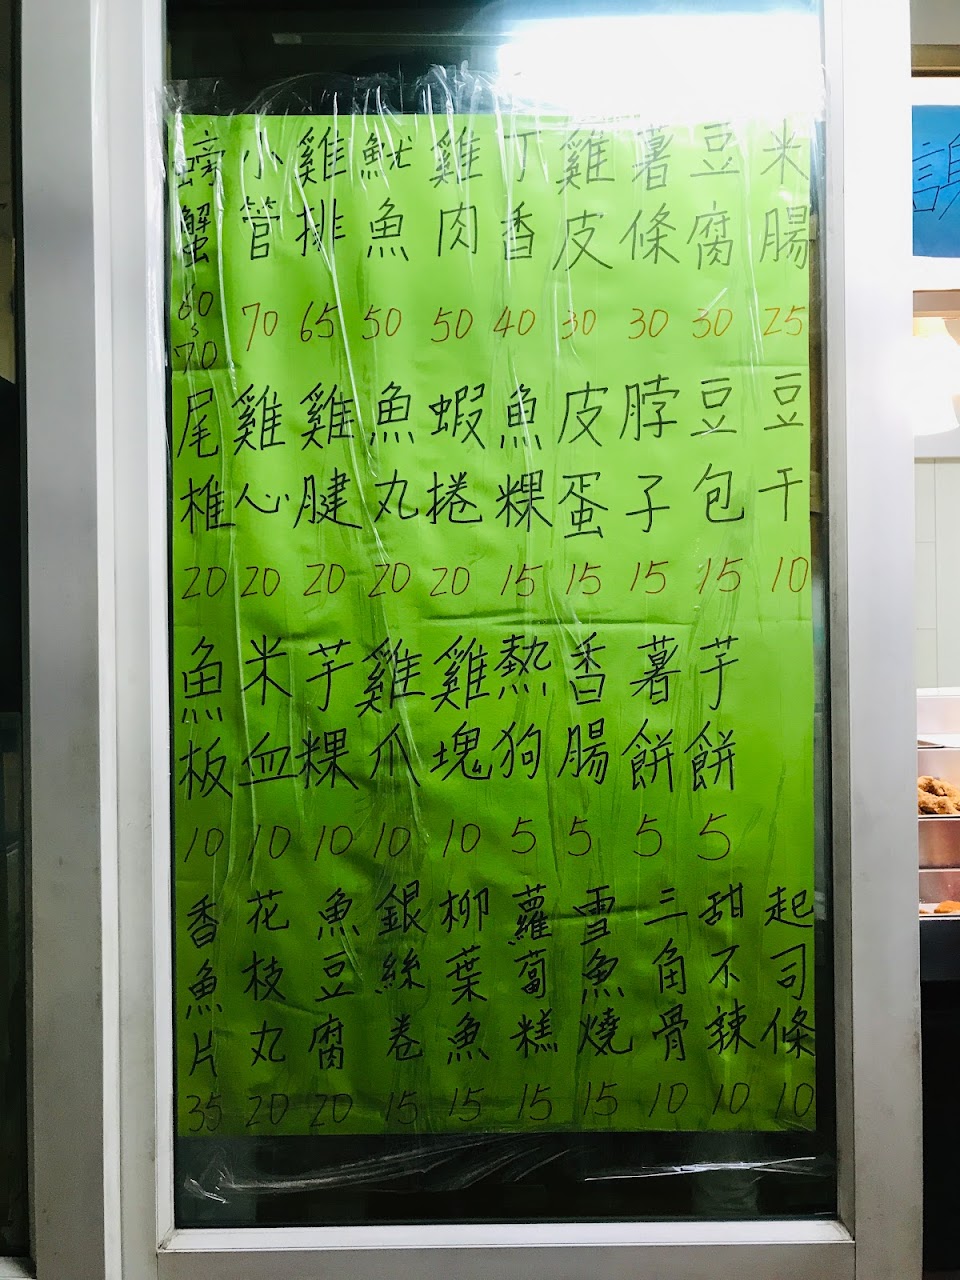 螃蟹 60~70
小管 70
雞排 65
魷魚 50
雞肉 50
丁香 40
雞皮 30
薯條 30
豆腐 30
米腸 25
尾椎 20
雞心 20
雞腱 20
魚丸 20
蝦捲 20
魚粿 15
皮蛋 15
脖子 15
豆包 15
豆干 10
魚板 10
米血 10
芋粿 10
雞爪 10
雞塊 10
熱狗 5
香腸 5
薯餅 5
芋餅 5
香魚片 35
花枝丸 20
魚豆腐 20
銀絲卷 15
柳葉魚 15
蘿蔔糕 15
雪魚燒 15
三角骨 10
甜不辣 10
起司條 10